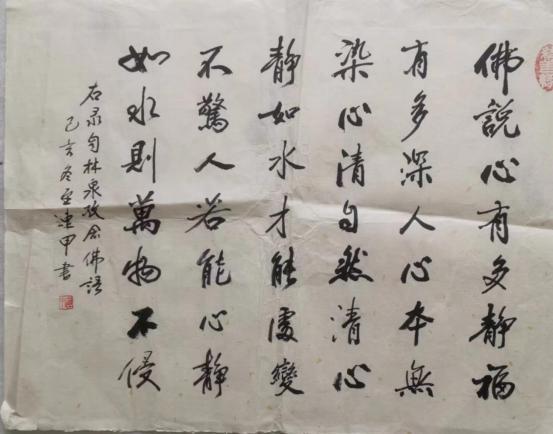 佛説心有多静福
有多深人心本無
染心清自然清心
静如水才能處變
不驚人若能心静
如水則萬物不侵
右录自林泉政居佛語
己亥冬至建甲書